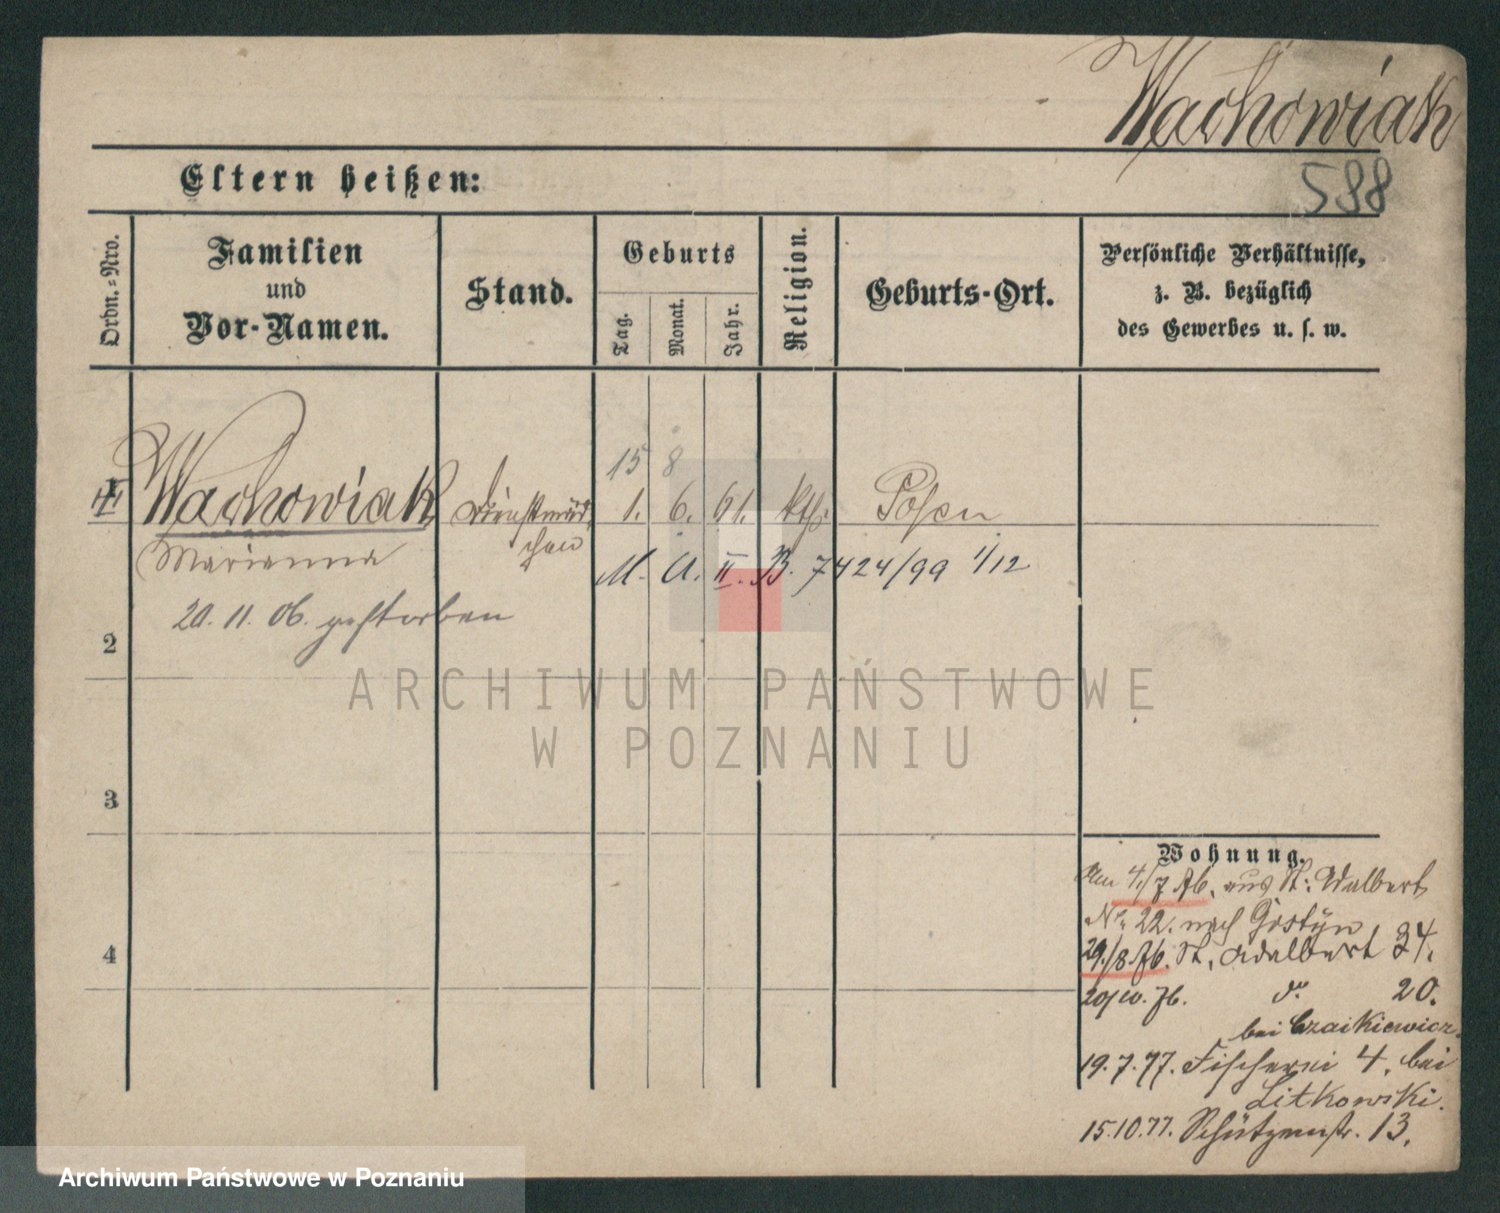 Wachowiak
588
Eltern heißen:
Ordn.-Nro.
Familien
und
Vor-Namen.
Stand.
Geburts
Tag.
Monat.
Jahr.
Religion.
Geburts-Ort.
Persönliche Verhältnisse,
z. B. bezüglich
des Gewerbes u. s. w.
15 8
1
Wachowiak Dienstmäd 1. 6. 61. kth. Posen
Marianna chen
M. A. II. B. 7424/99 1/12
20. 11. 06. gestorben
2
3
4
ARCHIWUM PAŃSTWOWE
W POZNANIU
Wohnung.
Am 4./7 76. aus St: Adalbert
No 22. nach Gostyn
29./8 76. St. Adalbert 34.
20/10. 76. do 20.
bei Czaikiewicz.
19.7.77. Fischerei 4. bei
Litkowski.
15.10.77. Schützenstr. 13.
Archiwum Państwowe w Poznaniu